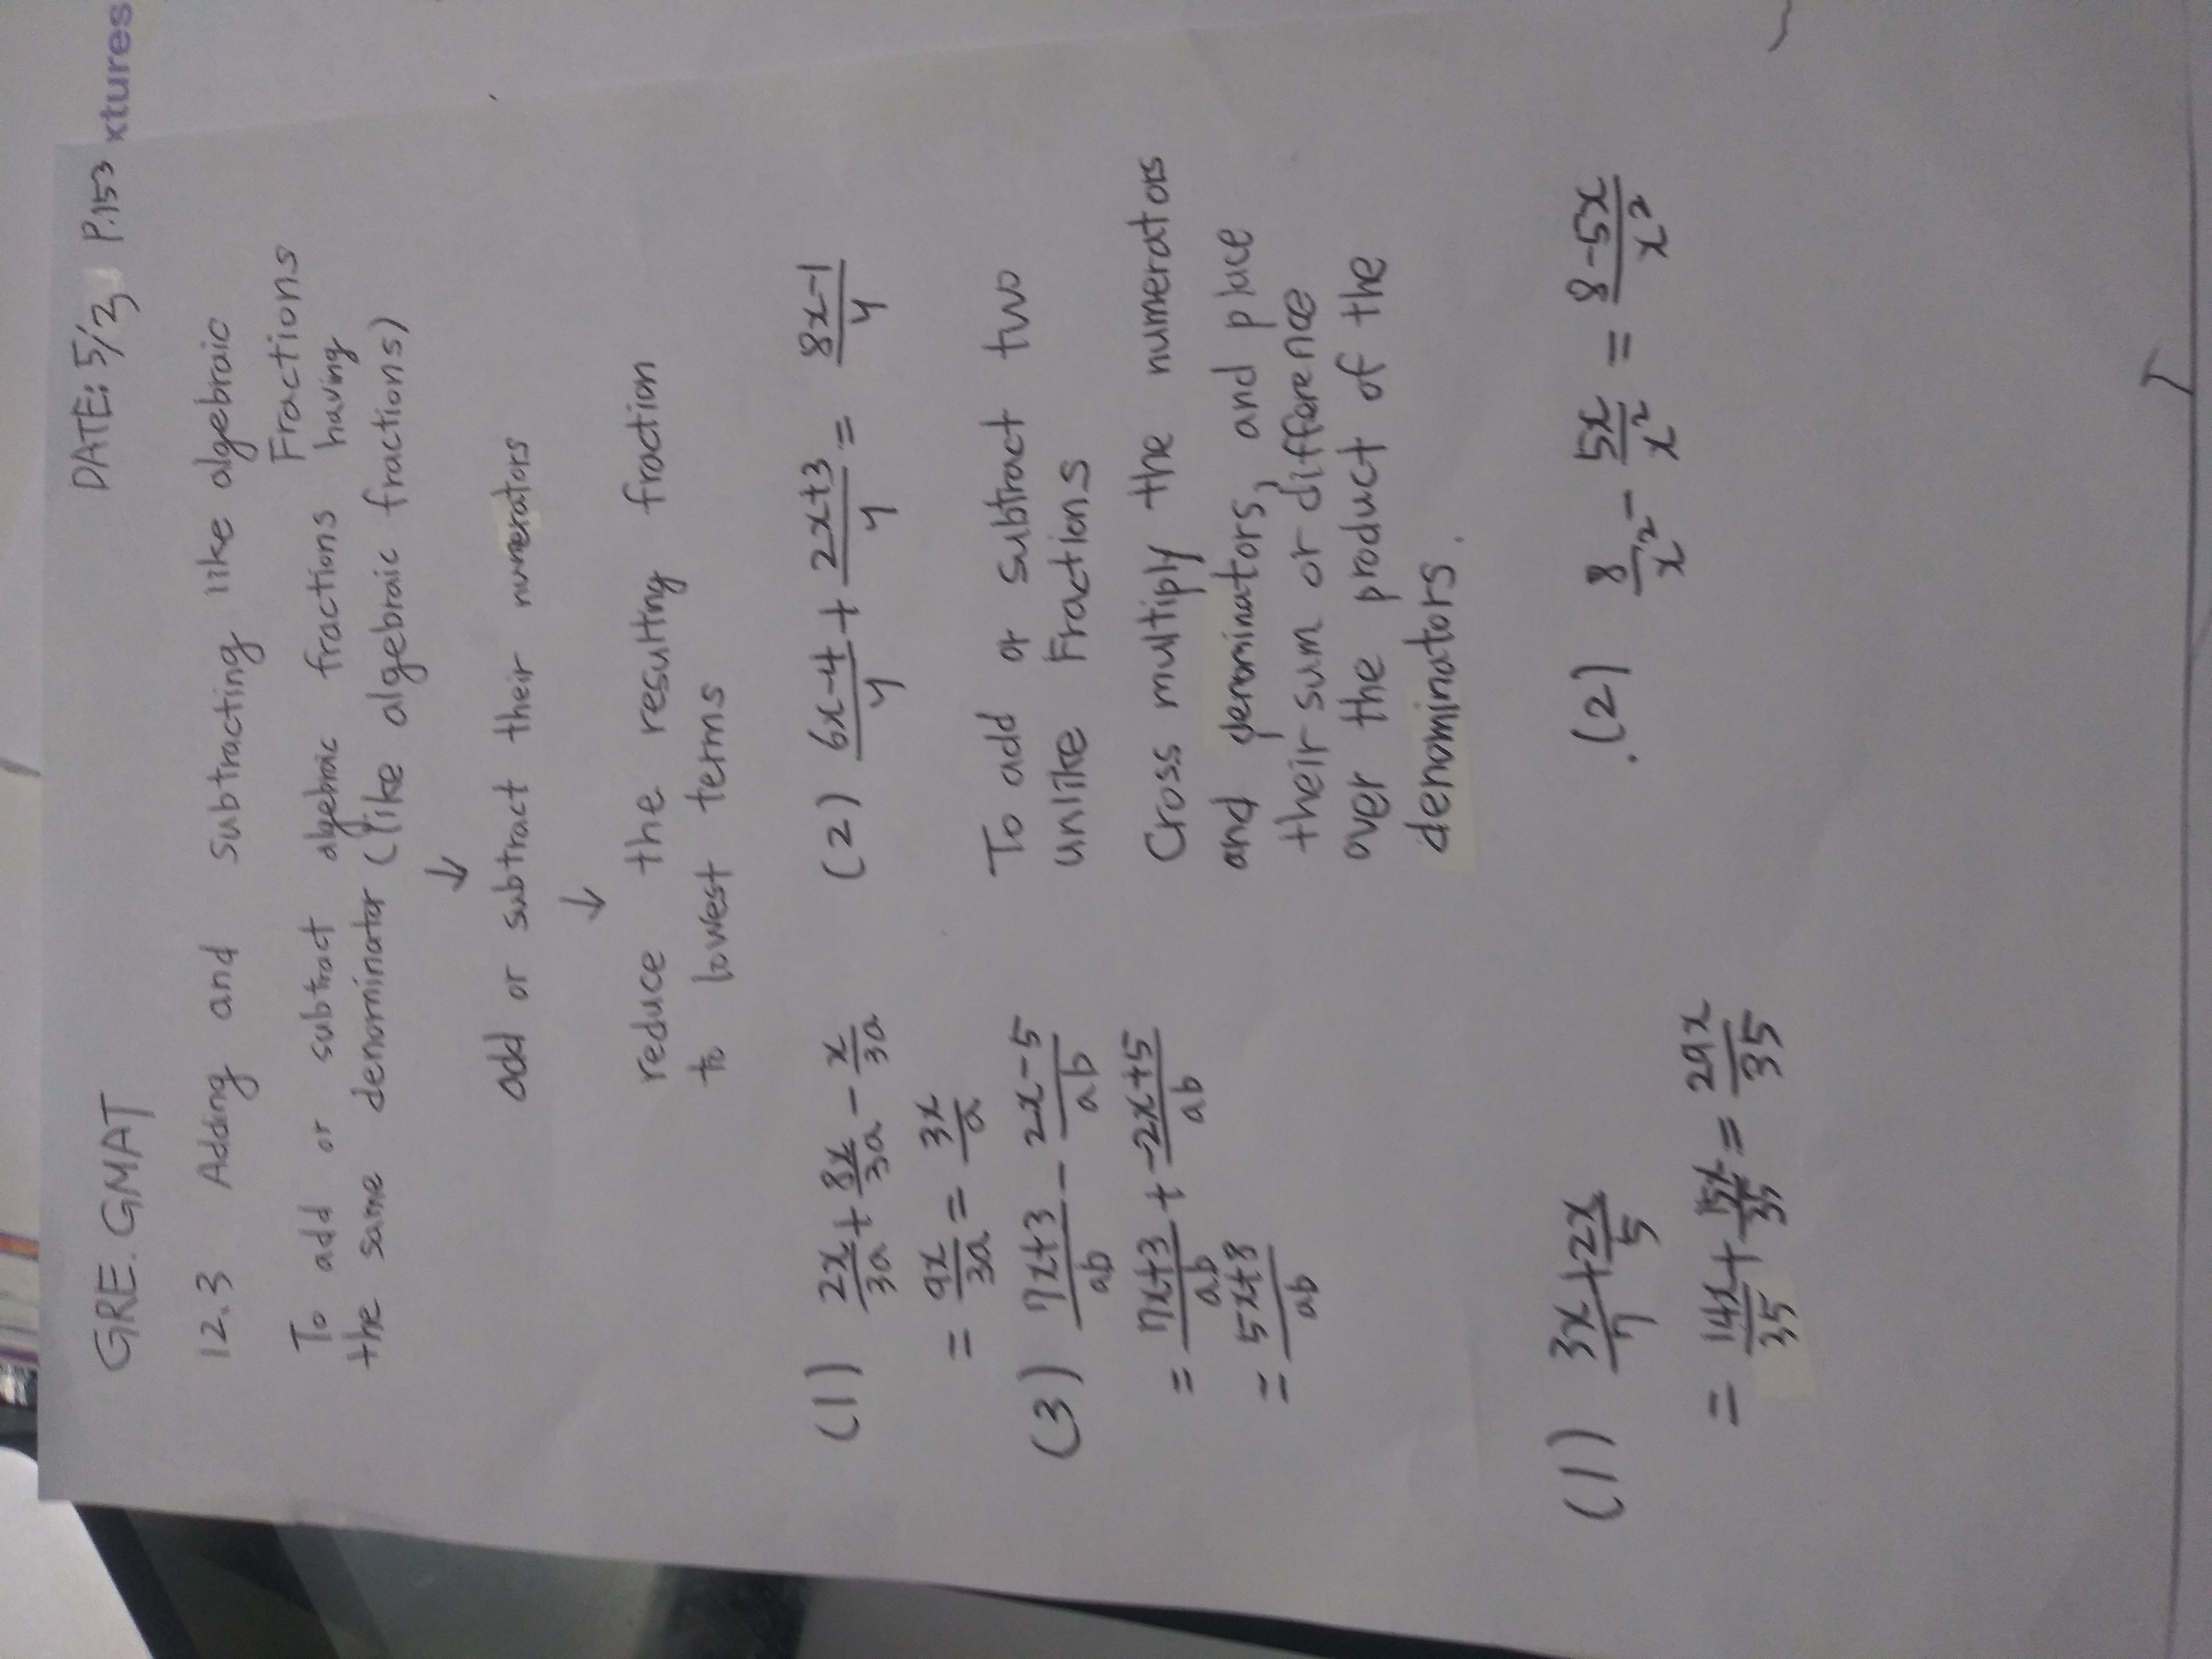 GRE. GMAT DATE: 5/3 P.153
xtures
12.3 Adding and subtracting like algebraic
Fractions
To add or subtract algebraic fractions having
the same denominator (like algebraic fractions)
↓
add or subtract their numerators
↓
reduce the resulting fraction
to lowest terms
(1) 2x/3a + 8x/3a - x/3a
= 9x/3a = 3x/a
(2) 6x-4/4 + 2x+3/4 = 8x-1/4
(3) 7x+3/ab - 2x-5/ab
= 7x+3/ab + -2x+5/ab
= 5x+8/ab
To add or subtract two
unlike Fractions
Cross multiply the numerators
and denominators, and place
their sum or difference
over the product of the
denominators.
(1) 3x/7 + 2x/5
= 14x/35 + 15x/35 = 29x/35
(2) 8/x² - 5x/x² = 8-5x/x²